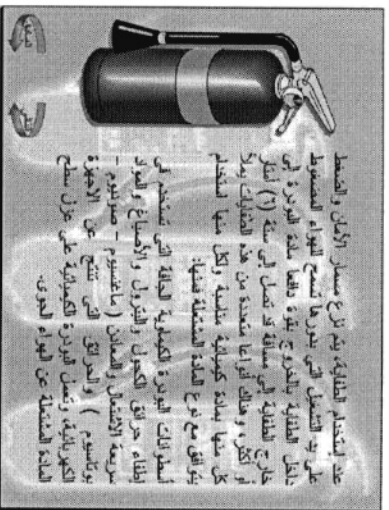 عند استخدام الطفاية، يتم نزع مسمار الأمان والضغط
على يد التشغيل التي بدورها تسمح للهواء المضغوط
داخل الطفاية بالخروج بقوة دافعا مادة البودرة إلى
خارج الطفاية إلى مسافة قد تصل إلى ستة (٦) أمتار
أو أكثر، وهناك أنواعا متعددة من هذه الطفايات يملأ
كل منها بمادة كيميائية مناسبة ولكل منها استخدام
يتوافق مع نوع المادة المشتعلة فمنها:
أسطوانات البودرة الكيماوية الجافة التي تستخدم في
إطفاء حرائق الكحول والبترول والأصباغ والمواد
سريعة الاشتعال والمعادن ( ماغنسيوم - صوديوم -
بوتاسيوم ) والحرائق التي تنتج عن الأجهزة
الكهربائية، وتعمل البودرة الكيميائية على عزل سطح
المادة المشتعلة عن الهواء الجوى.